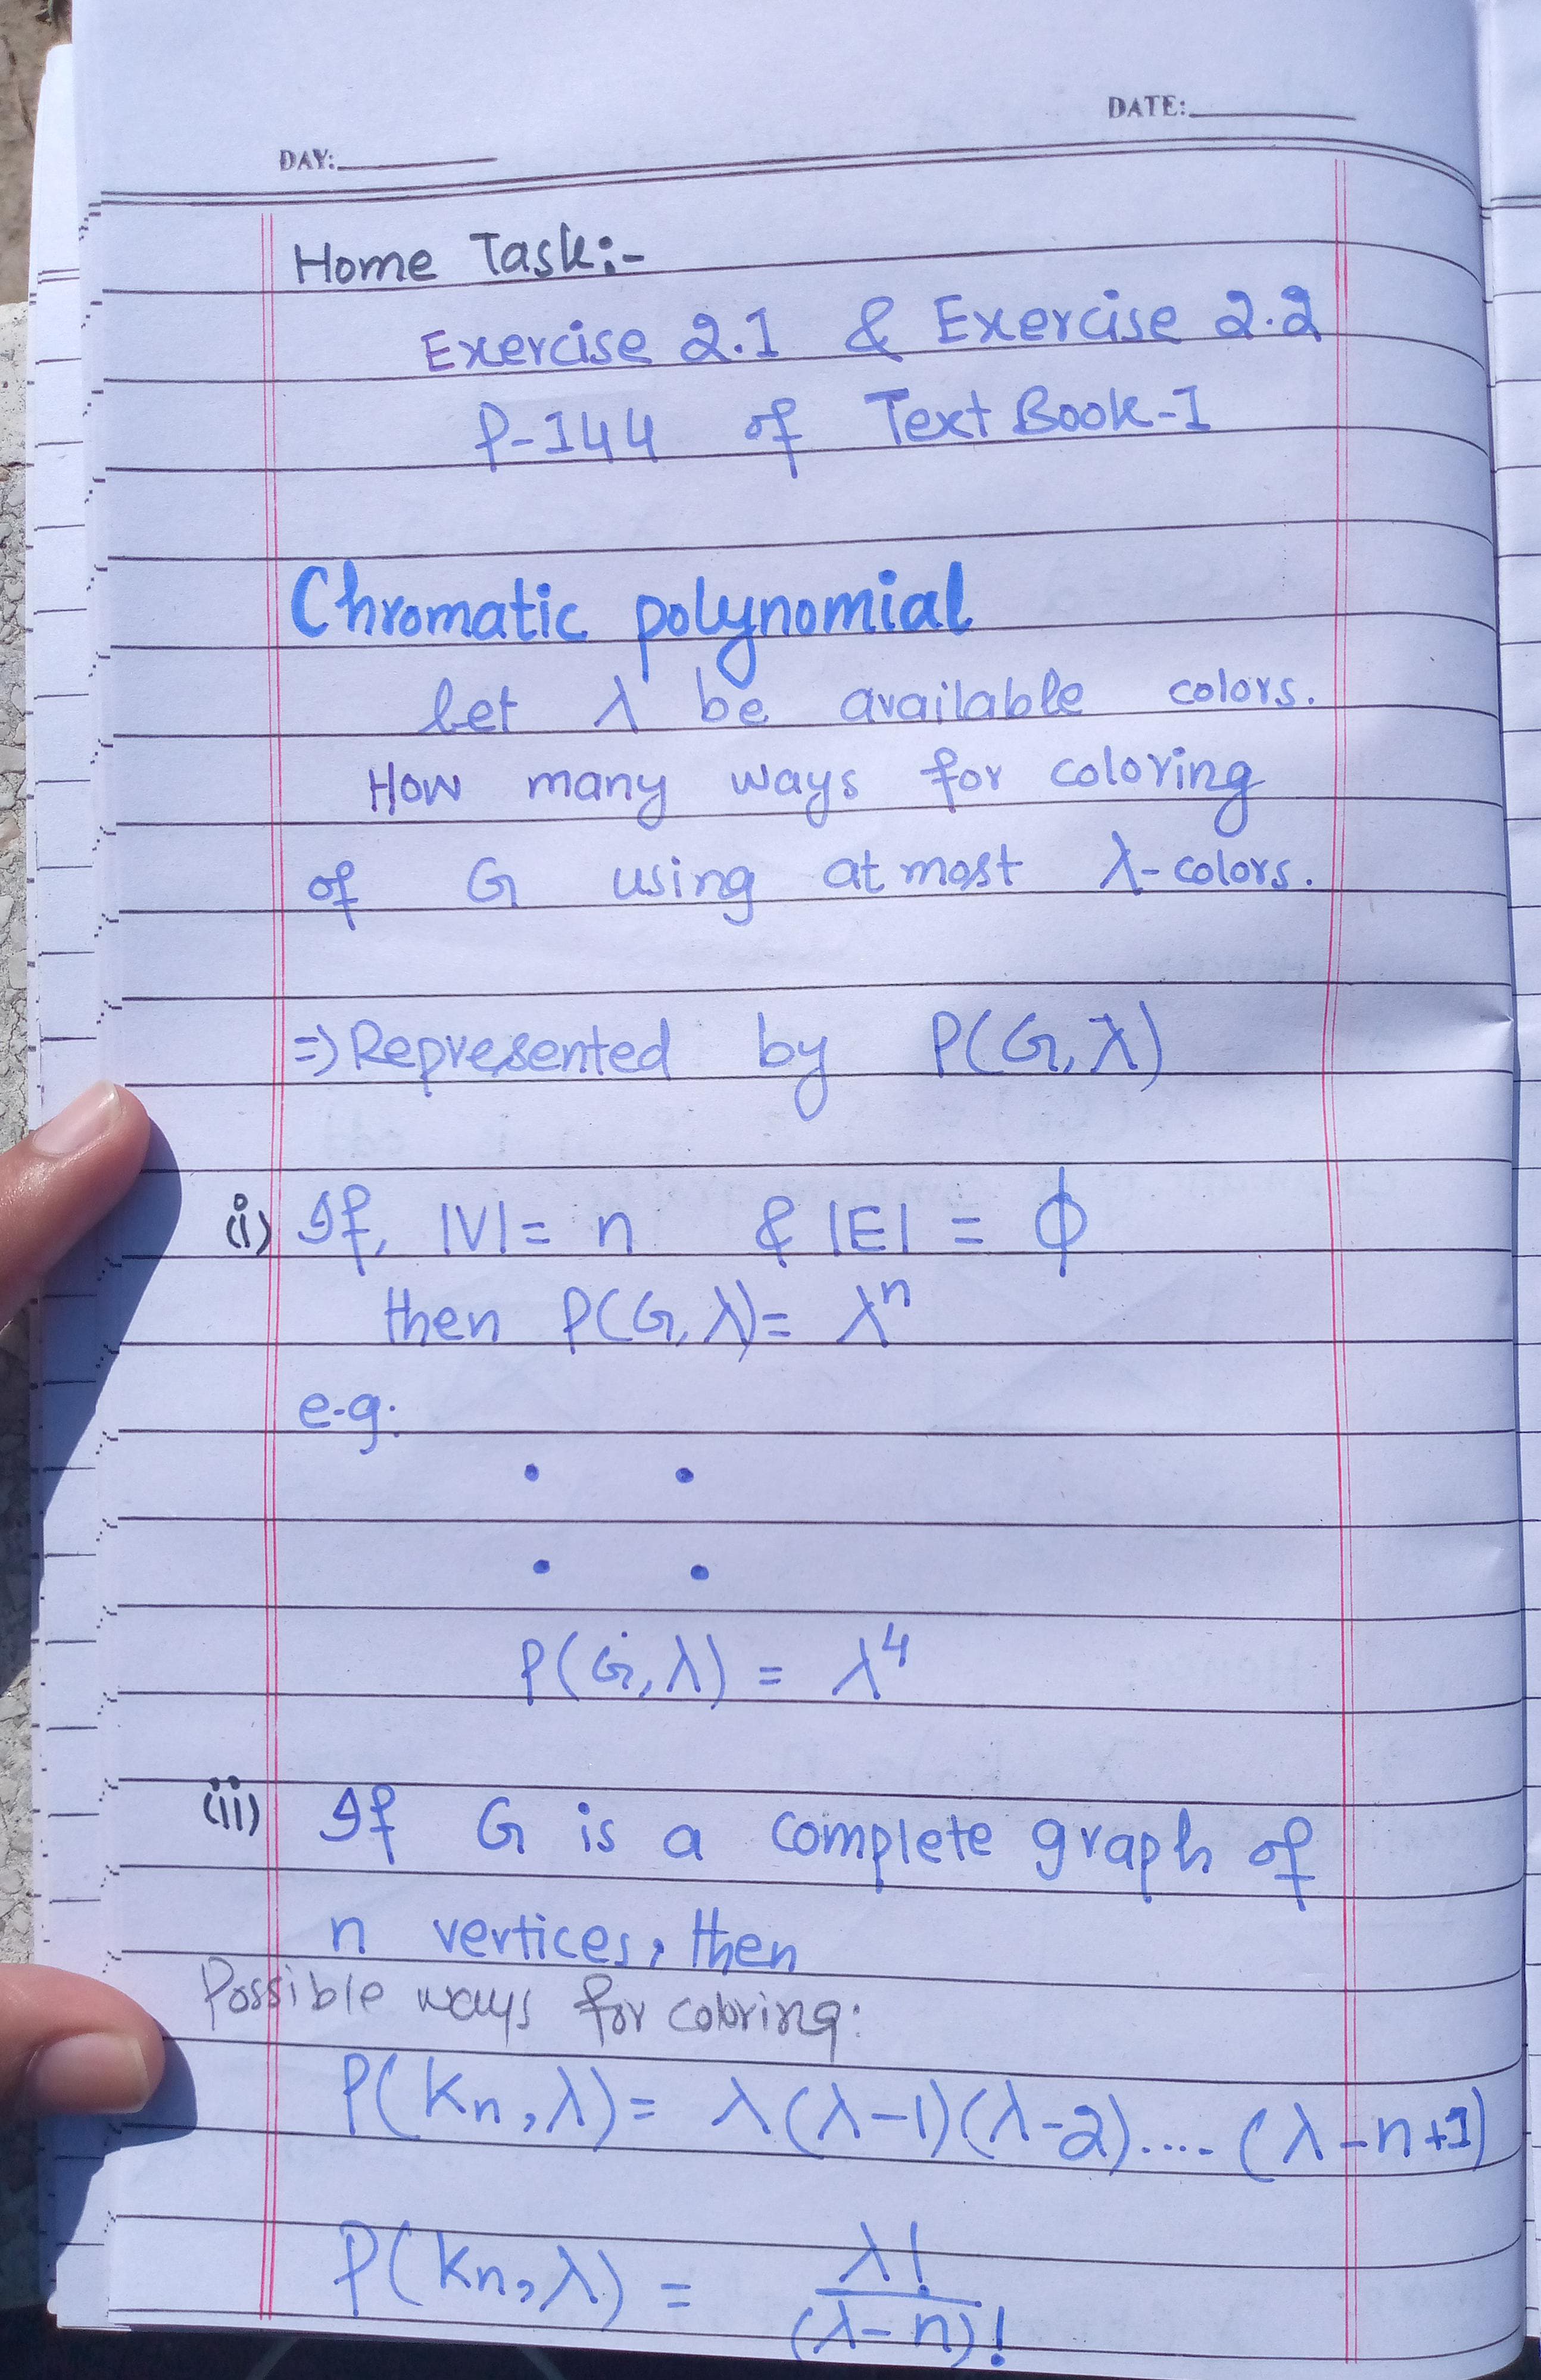 DATE:
DAY:
Home Task:-
Exercise 2.1 & Exercise 2.2
P-144 of Text Book-1
Chromatic polynomial
let λ be available colors.
How many ways for coloring
of G using at most λ-colors.
⇒ Represented by P(G, λ)
(i) If, |V| = n & |E| = ϕ
then P(G, λ) = λⁿ
e.g.
P(G, λ) = λ⁴
(ii) If G is a complete graph of
n vertices, then
Possible ways for coloring:
P(kₙ, λ) = λ(λ-1)(λ-2)....(λ-n+1)
P(kₙ, λ) = λ!/(λ-n)!